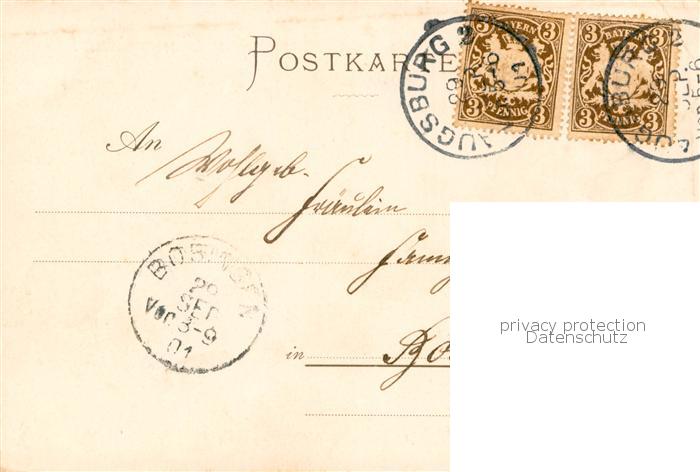 POSTKARTE
BAYERN
3 3
PFENNIG
3 3
BAYERN
3 3
PFENNIG
3 3
AUGSBURG 2
SEP
AUGSBURG 2
SEP
An
Wohlgeb.
Fräulein
BOBINGEN
29
SEP
VOR 8-9
01
in
privacy protection
Datenschutz